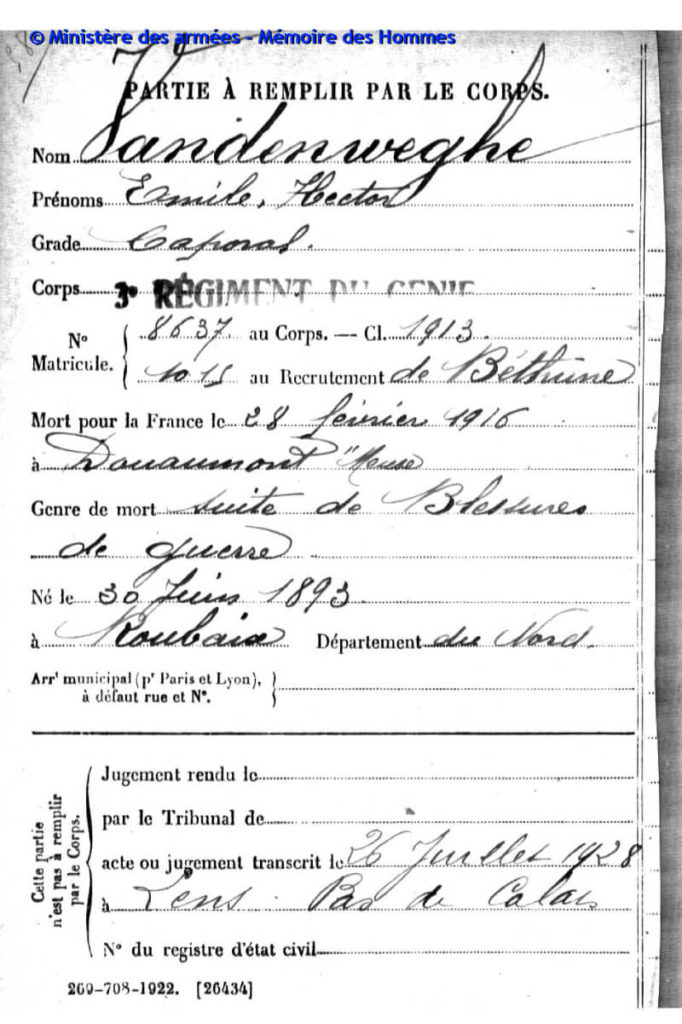 © Ministère des armées - Mémoire des Hommes
PARTIE À REMPLIR PAR LE CORPS.
Nom Vandenweghe
Prénoms Emile, Hector
Grade Caporal.
Corps 3e RÉGIMENT DU GÉNIE
N° Matricule. 8637 au Corps. — Cl. 1913.
1015 au Recrutement de Béthune
Mort pour la France le 28 février 1916
à Douaumont "Meuse
Genre de mort suite de Blessures
de guerre
Né le 30 Juin 1893
à Roubaix Département du Nord.
Arrt municipal (pr Paris et Lyon),
à défaut rue et N°.
Cette partie
n'est pas à remplir
par le Corps.
Jugement rendu le
par le Tribunal de
acte ou jugement transcrit le 26 Juillet 1928
à Lens. Pas de Calais
N° du registre d'état civil
269-708-1922. [26434]